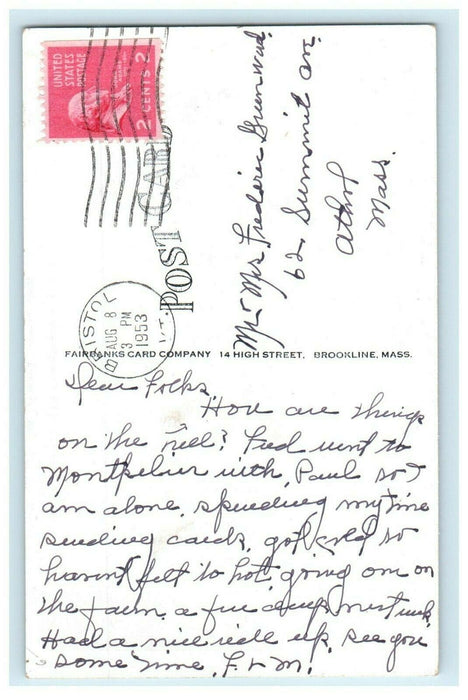 UNITED
STATES
POSTAGE
2 CENTS 2
POST CARD
BRISTOL
AUG 8
3 PM
1953
VT.
Mr & Mrs Frederic Greenwood
62 Summit Ave
Athol
Mass.
FAIRBANKS CARD COMPANY 14 HIGH STREET, BROOKLINE, MASS.
Dear Folks
How are things
on the hill? Fred went to
Montpelier with Paul so I
am alone, spending my time
sending cards, got cold so
havent felt to hot, going on on
the farm. a few camps next week
Had a nice ride up, see you
some time, F & M.